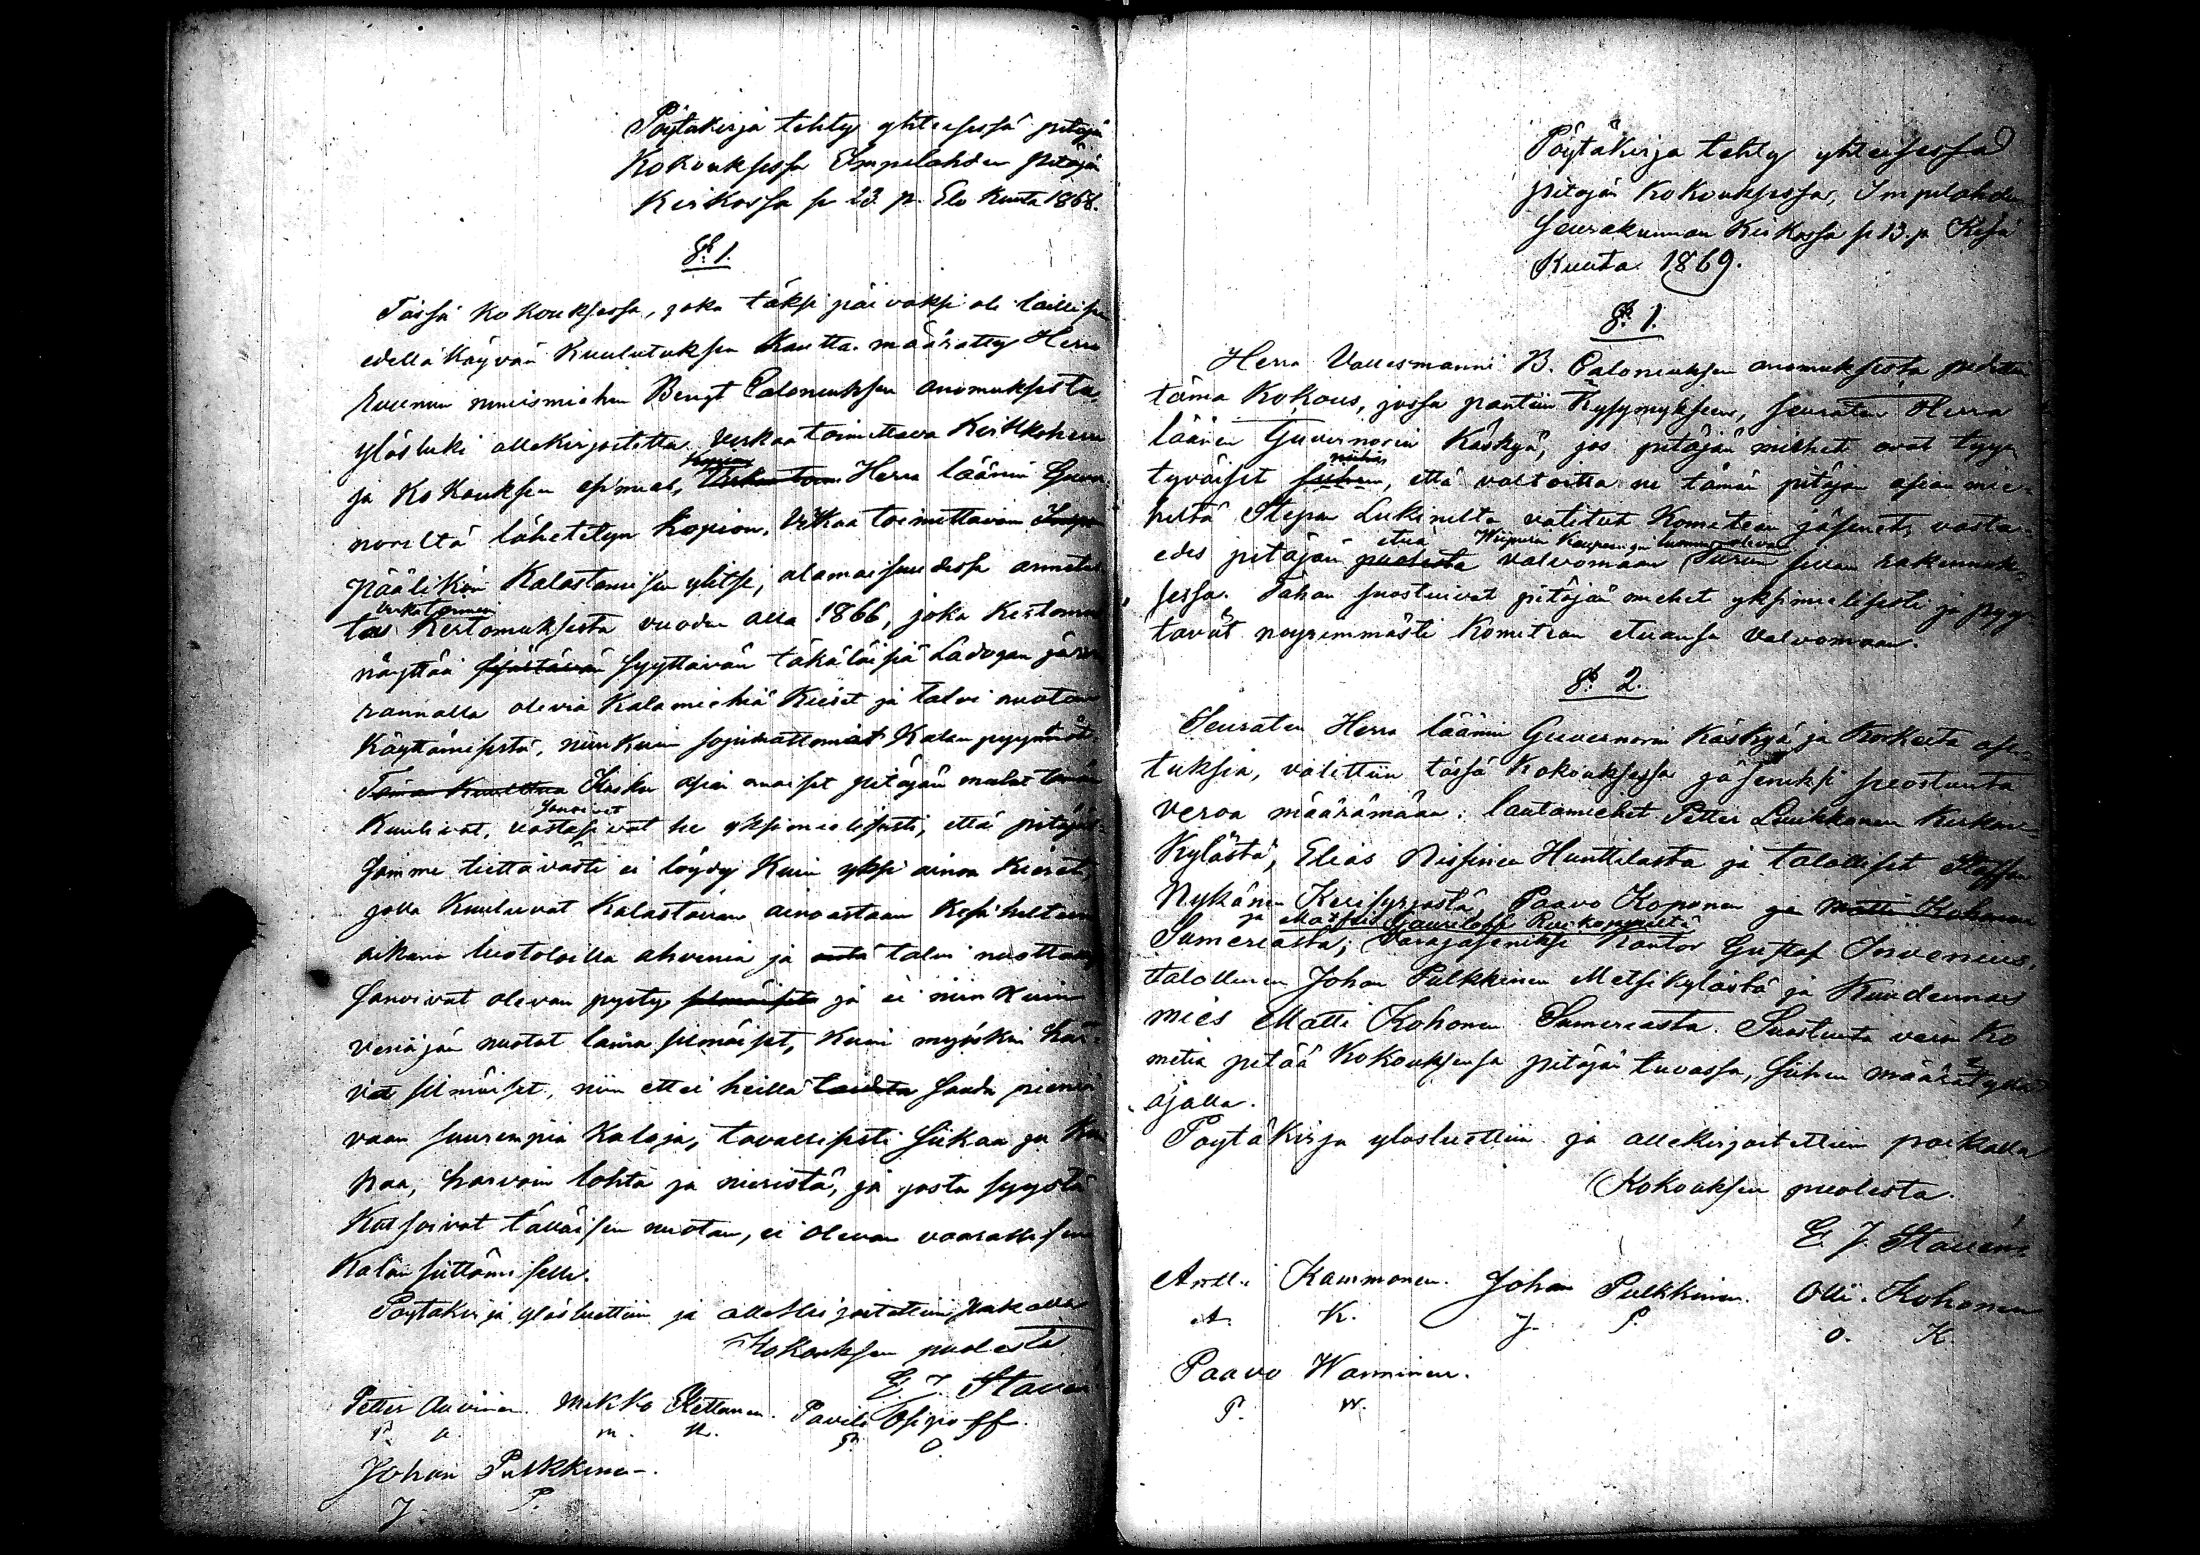 Pöytäkirja tehty yhteisessä pitäjä
Kokouksessa Impilahden pitäjän
Kirkossa p 23. p. Elo Kuuta 1868.
§ 1.
Tässä Kokouksessa, joka täksi päiväksi oli laillisen
edelläkäyvän Kuulutuksen Kautta määrätty Herra
Kruunun nimismiehen Bengt Caloniuksen anomuksesta,
ylösluki allekirjoitettu Virkaa toimittava Kirkkoherra
ja Kokouksen esimies, Herra läänin Guver
noriltä lähetetyn Kopion, Virkaa toimittavan
päälikön Kalastamisen ylitse, alamaisuudessa annetus
Virkatoimen
tas Kertomuksesta vuoden alla 1866, joka Kertomus
näyttää syyttävän täkäläisiä Ladogan järven
rannalla olevia Kalamiehiä Kieret ja talvi nuotan
Käyttämisestä, niinkuin sopimattomat Kalan pyynnöt
Tämän Kuultua Koska asian omaiset pitäjän miehet tämän
Sanoivat
Kuulivat, vastasivat he yksimielisesti, että pitäjäs
sämme tiettävästi ei löydy Kuin yksi ainoa Kieret
jolla Kuuluvat Kalastavan ainoastaan Kesä helteen
aikana luotoloilla ahvenia ja talvi nuottaa
Sanoivat olevan pysty ja ei niin Kuin
Venäjän nuotat laina silmäiset, Kuin myöskin har
vat silmäiset, niin ettei heillä saada pieniä
vaan suurempia Kaloja, tavallisesti Siikaa ja Ku
haa, harvoin lohta ja nieristä, ja josta syystä
Katsoivat tälläisen nuotan, ei olevan vaarallisen
Kalan siittämiselle.
Pöytäkirja ylösluettiin ja allekirjoitettiin paikalla
Kokouksen puolesta
E. J. Stavén
Petter Auvinen. Mikko Kettunen. Pavila Osipoff.
P. A. M. K. P. O.
Johan Pulkkinen.
J. P.
Pöytäkirja tehty yhteisessä
pitäjän Kokouksessa, Impilahden
Seurakunnan Kirkossa p 13. p. Kesä
Kuuta 1869.
§ 1.
Herra Vallesmanni B. Caloniuksen anomuksesta pidettiin
tämä Kokous, jossa pantiin Kysymykseen, seuraten Herra
läänin Guvernorin Käskyä, jos pitäjän miehet ovat tyy
niihin
tyväiset siihen, että valtoitta ne tämän pitäjän asian mie
heltä Stepan Lukinilta valitut Komitean jäsenet, vasta
etua Wiipurin Kaupungin
edes pitäjän puolesta valvomaan sillan rakennuk
sessa. Tähän suostuivat pitäjän miehet yksimielisesti ja pyy
tävät nöyrimmästi Komitean etuansa valvomaan.
§ 2.
Seuraten Herra läänin Guvernorin Käskyä ja Korkeita ase
tuksia, valittiin tässä Kokouksessa jäseniksi suostunta
veroa määrämään: lautamiehet Petter Luikkanen Kirkon
Kylästä, Elias Nissinen Hunttilasta ja talolliset Staffan
Nykänen Kerisyrjästä Paavo Koponen ja Matti Kohonen
ja Matfei Gauriloff Ruokojärveltä
Sumeriasta; Varajäseniksi Kantor Gustaf Orvenius,
talollinen Johan Pulkkinen Metsäkylästä ja Kuudennus
mies Matti Kohonen Sumeriasta. Suostunta veron Ko
mitea pitää Kokouksensa pitäjän tuvassa, siihen määrätyllä
ajalla.
Pöytäkirja ylösluettiin ja allekirjoitettiin paikalla
Kokouksen puolesta.
E. J. Stavén
Antti Kammonen. Johan Pulkkinen. Olli Kohonen
A. K. J. P. O. K.
Paavo Wanninen.
P. W.